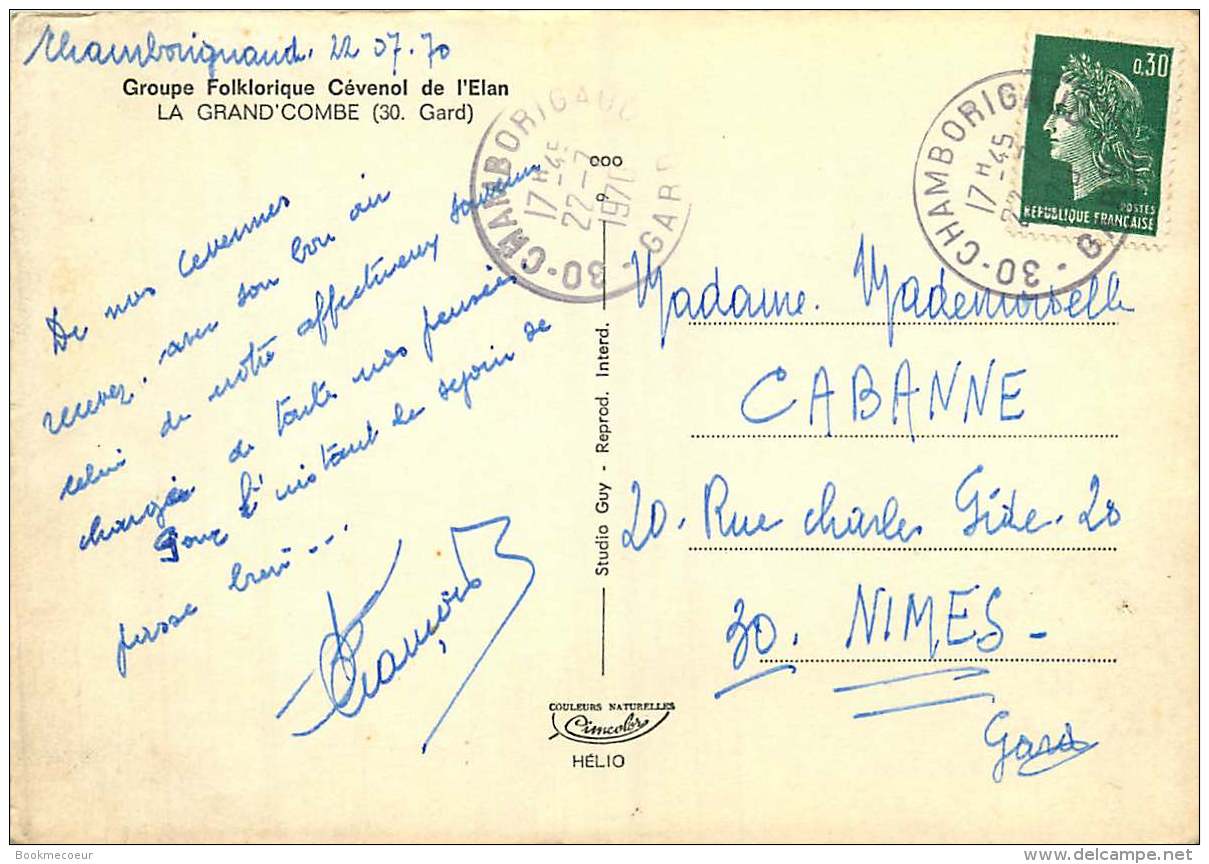 Chamborignaud. 22.07.70
Groupe Folklorique Cévenol de l'Elan
LA GRAND'COMBE (30. Gard)
De nos cevennes
recevez, avec son bon air
celui de notre affectueux souvenir
chargés de toute nos pensées.
Pour l'instant le sejour se
passe bien...
François
30 - CHAMBORIGAUD
17H-45
22-7
1970
GARD
000
9
Studio Guy - Reprod. Interd.
COULEURS NATURELLES
Cimcolor
HÉLIO
0,30
POSTES
REPUBLIQUE FRANÇAISE
30 - CHAMBORIGA
17H-45
GARD
Madame. Mademoiselle
CABANNE
20. Rue Charles Gide. 20
30. NIMES -
Gard
Bookmecoeur
delcampe.net